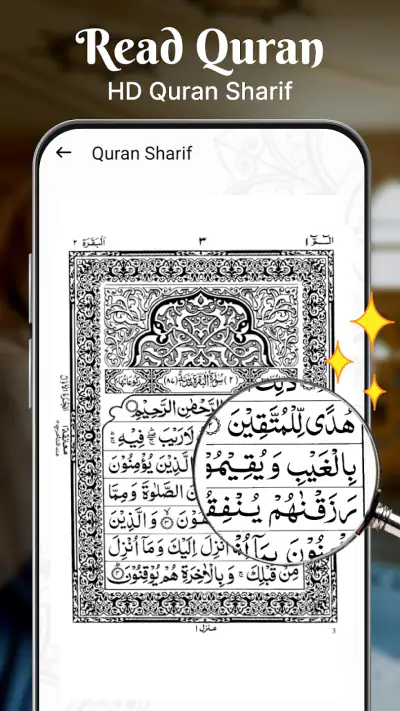 Read Quran
HD Quran Sharif
← Quran Sharif
اَلْبَقَرَة ٢
٣
الٓمّٓ ١
الرَّحْمٰنِ الرَّحِيْمِ
لَارَيْبَ ۛ فِيْهِ ۛ
الَّذِيْنَ يُؤْمِنُوْنَ
الصَّلٰوةَ وَمِمَّا
وَالَّذِيْنَ
اُنْزِلَ اِلَيْكَ وَمَآ اُنْزِلَ
مِنْ قَبْلِكَ ۚ وَبِالْاٰخِرَةِ هُمْ يُوْقِنُوْنَ
ذٰلِكَ
هُدًى لِّلْمُتَّقِيْنَ
بِالْغَيْبِ وَيُقِيْمُوْ
رَزَقْنٰهُمْ يُنْفِقُ
بِمَآ
منزل ١
3